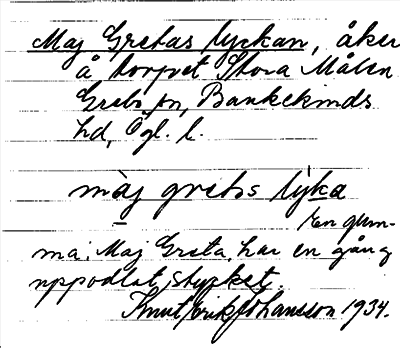 Maj Gretas lyckan, åker
å torpet Stora Målen
Grebo sn, Bankekinds
hd, Ögl. l.
màj gretos lỳka
En gum-
ma, Maj Greta, har en gång
uppodlat stycket.
Knut Erik Johansson 1934.